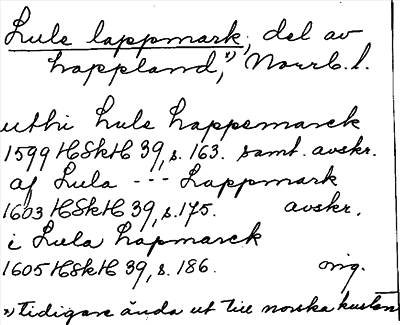 Lule lappmark, del av
Lappland,¹⁾ Norrb. l.
uthi Lule Lappemarck
1599 HSkH 39, s. 163. samt. avskr.
af Lula --- Lappmark
1603 HSkH 39, s. 175. avskr.
i Lula Lapmarck
1605 HSkH 39, s. 186. orig.
¹⁾ tidigare ända ut till norska kusten